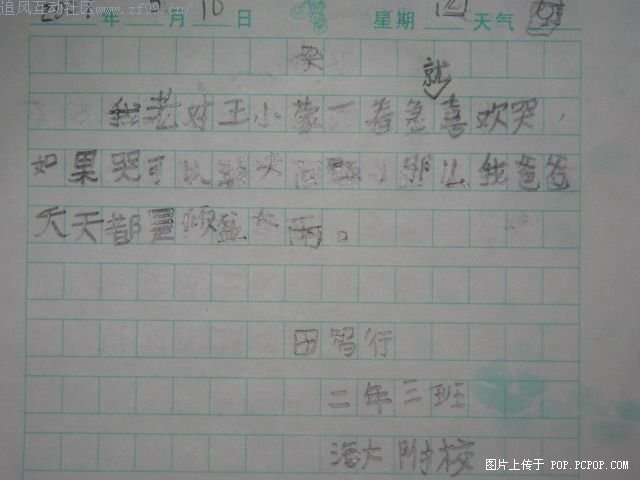 追风互动社区www.zf99.cn
年 月 10 日 星期 四 天气
哭
就
我老对王小蒙一着急喜欢哭，
如果哭可以解决问题，那么我爸爸
天天都是倾盆大雨。
田智行
二年三班
海大附校
图片上传于 POP.PCPOP.COM